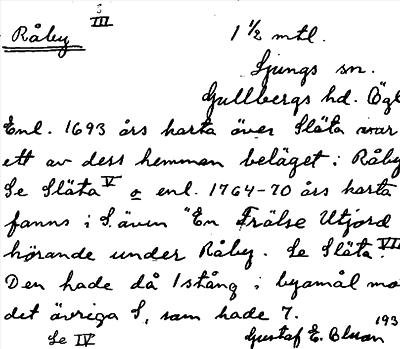 3
III
Råby 1 ½ mtl.
Ljungs sn.
Gullbergs hd. Ögl
Enl. 1693 års karta över Släta var
ett av dess hemman beläget i Råby
Se Släta V o enl. 1764-70 års karta
fanns i S. även "En Frälse Utjord
hörande under Råby. Se Släta VII.
Den hade då 1 stång i byamål mo
det övriga S, som hade 7.
Se IV Gustaf E. 193